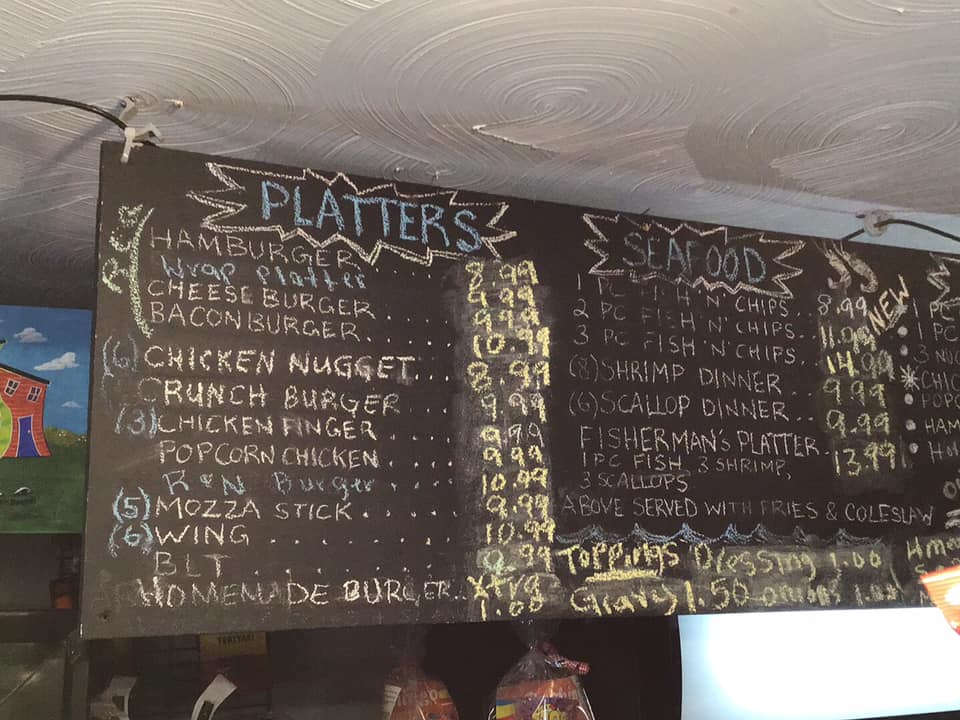 PLATTERS
HAMBURGER.... 8.99
Wrap Platter 9.99
CHEESEBURGER.... 9.99
BACONBURGER.... 10.99
(6) CHICKEN NUGGET... 8.99
CRUNCH BURGER.... 9.99
(3) CHICKEN FINGER..... 9.99
POPCORN CHICKEN.... 9.99
R&N Burger.... 10.99
(5) MOZZA STICK....... 9.99
(6) WING........ 10.99
BLT........
HOMEMADE BURGER.. Xtra 1.00
SEAFOOD
1 PC FISH 'N' CHIPS.. 8.99
2 PC FISH 'N' CHIPS.. 11.99
3 PC FISH 'N' CHIPS.. 14.99
(8) SHRIMP DINNER.... 9.99
(6) SCALLOP DINNER... 9.99
FISHERMAN'S PLATTER 13.99
1 PC FISH, 3 SHRIMP,
3 SCALLOPS
ABOVE SERVED WITH FRIES & COLESLAW
TOPPINGS Dressing 1.00
Gravy 1.50 onions
NEW
1 PC
1 PC
TERIYAKI